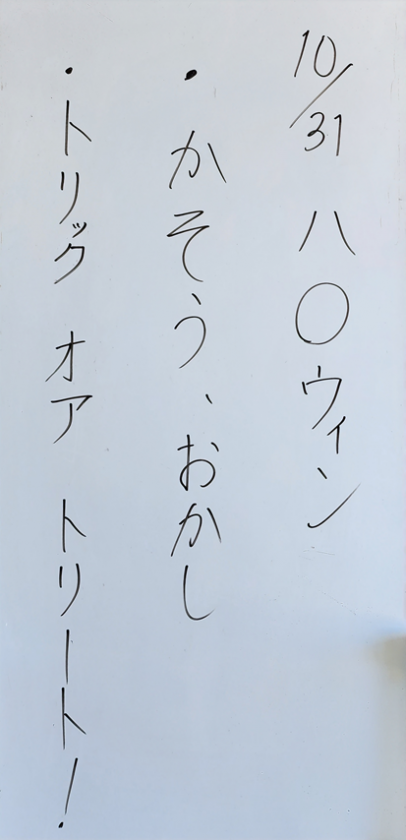 10/31 ハ〇ウィン
・かそう、おかし
・トリック オア トリート!